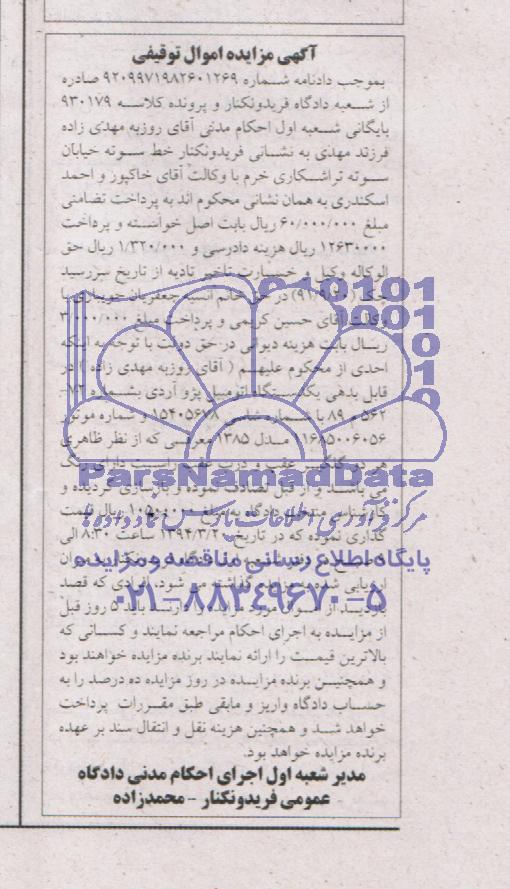 آگهی مزایده اموال توقیفی
بموجب دادنامه شماره ۹۲۰۹۹۷۱۹۸۲۶۰۱۲۶۹ صادره
از شعبه دادگاه فریدونکنار و پرونده کلاسه ۹۳۰۱۷۹
بایگانی شعبه اول احکام مدنی آقای روزبه مهدی زاده
فرزند مهدی به نشانی فریدونکنار خط سوته خیابان
سوته تراشکاری خرم با وکالت آقای خاکپور و احمد
اسکندری به همان نشانی محکوم اند به پرداخت تضامنی
مبلغ ۶۰/۰۰۰/۰۰۰ ریال بابت اصل خواسته و پرداخت
۱۲۶۳۰۰۰۰ ریال هزینه دادرسی و ۱/۳۲۰/۰۰۰ ریال حق
الوکاله وکیل و خسارت تاخیر تادیه از تاریخ سررسید
چک در حق خانم انسیه جعفریان جویباری با
وکالت آقای حسین کریمی و پرداخت مبلغ ۳/۰۰۰/۰۰۰
ریال بابت هزینه دیوانی در حق دولت با توجه به اینکه
احدی از محکوم علیهم ( آقای روزبه مهدی زاده ) در
قابل بدهی یک دستگاه اتومبیل پژو آردی بشماره ۷۲-
۵۶۲ م ۸۹ با شماره شاسی ۱۵۴۰۵۶۷۸ و شماره موتور
۱۱۶۸۵۰۰۶۰۵۶ مدل ۱۳۸۵ معرفی که از نظر ظاهری
هر دو گلگیر عقب و درب عقب راست دارای رنگ
می باشد و از قبل تصادف نموده و بازسازی گردیده و
کارشناس منتخب دادگاه به مبلغ ریال قیمت
گذاری نموده که در تاریخ ۱۳۹۴/۳/۲ ساعت ۸:۳۰ الی
ارزیابی شده به مزایده گذاشته می شود. افرادی که قصد
بازدید از اموال مورد مزایده را دارند باید ۵ روز قبل
از مزایده به اجرای احکام مراجعه نمایند و کسانی که
بالاترین قیمت را ارائه نمایند برنده مزایده خواهند بود
و همچنین برنده مزایده در روز مزایده ده درصد را به
حساب دادگاه واریز و مابقی طبق مقررات پرداخت
خواهد شد و همچنین هزینه نقل و انتقال سند بر عهده
برنده مزایده خواهد بود.
مدیر شعبه اول اجرای احکام مدنی دادگاه
عمومی فریدونکنار - محمدزاده
ParsNamadData
مرکز فرآوری اطلاعات پارس نماد داده ها
پایگاه اطلاع رسانی مناقصه ومزایده
۰۲۱-۸۸۳۴۹۶۷۰-۵